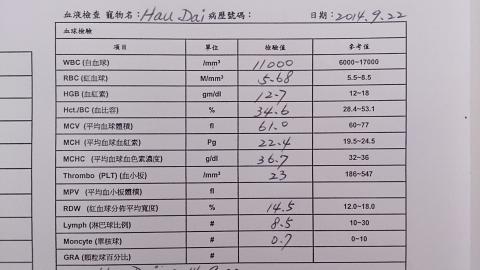 血液檢查 寵物名：Hau Dai 病歷號碼： 日期：2014.9.22
血球檢驗
項目 單位 檢驗值 參考值
WBC (白血球) /mm³ 11000 6000~17000
RBC (紅血球) M/mm³ 5.68 5.5~8.5
HGB (血紅素) gm/dl 12.7 12~18
Hct./BC (血比容) % 34.6 28.4~53.1
MCV (平均血球體積) fl 61.0 60~77
MCH (平均血球血紅素) Pg 22.4 19.5~24.5
MCHC (平均血球血色素濃度) g/dl 36.7 32~36
Thrombo (PLT) (血小板) /mm³ 23 186~547
MPV (平均血小板體積) fl
RDW (紅血球分佈平均寬度) % 14.5 12.0~18.0
Lymph (淋巴球比例) # 8.5 10~30
Moncyte (單核球) # 0.7 0~10
GRA (顆粒球百分比) #